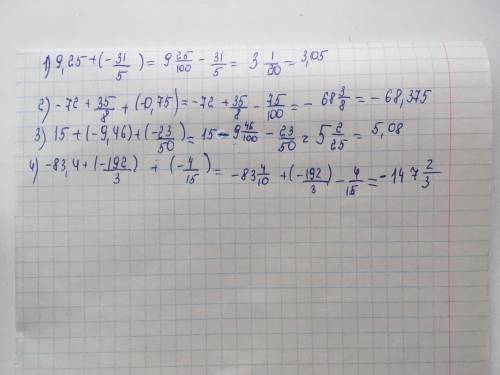 1) 9,25 + (- 31/5) = 9 25/100 - 31/5 = 3 1/20 = 3,05
2) - 72 + 35/8 + (-0,75) = -72 + 35/8 - 75/100 = - 68 3/8 = - 68,375
3) 15 + (-9,46) + (-23/50) = 15 - 9 46/100 - 23/50 = 5 2/25 = 5,08
4) -83,4 + (-192/3) + (-4/15) = -83 4/10 + (-192/3) - 4/15 = -147 2/3